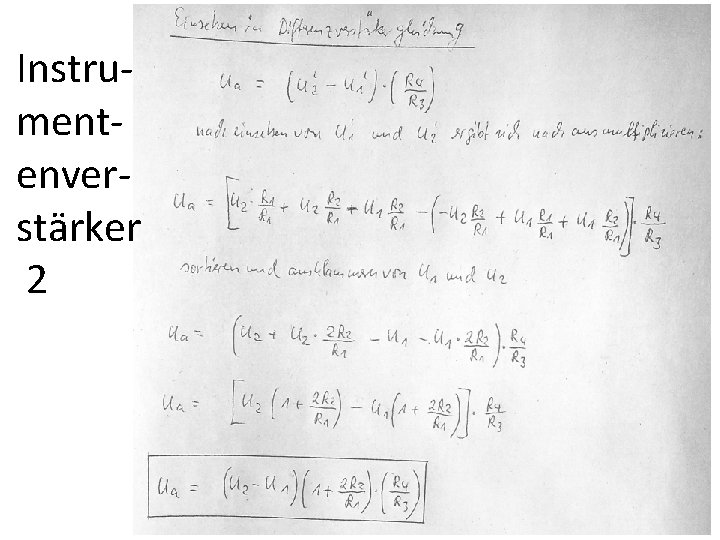 Instru-
ment-
enver-
stärker
2
Einsetzen in Differenzverstärkergleichung
Ua = (U2' - U1') · (R4/R3)
nach einsetzen von U1' und U2' ergibt sich nach ausmultiplizieren:
Ua = [U2 · R1/R1 + U2 R2/R1 - U1 R2/R1 - (-U2 R2/R1 + U1 R1/R1 + U1 R2/R1)] · R4/R3
sortieren und ausklammern von U1 und U2
Ua = (U2 + U2 · 2R2/R1 - U1 - U1 · 2R2/R1) · R4/R3
Ua = [U2 (1 + 2R2/R1) - U1 (1 + 2R2/R1)] · R4/R3
Ua = (U2 - U1) (1 + 2R2/R1) · (R4/R3)